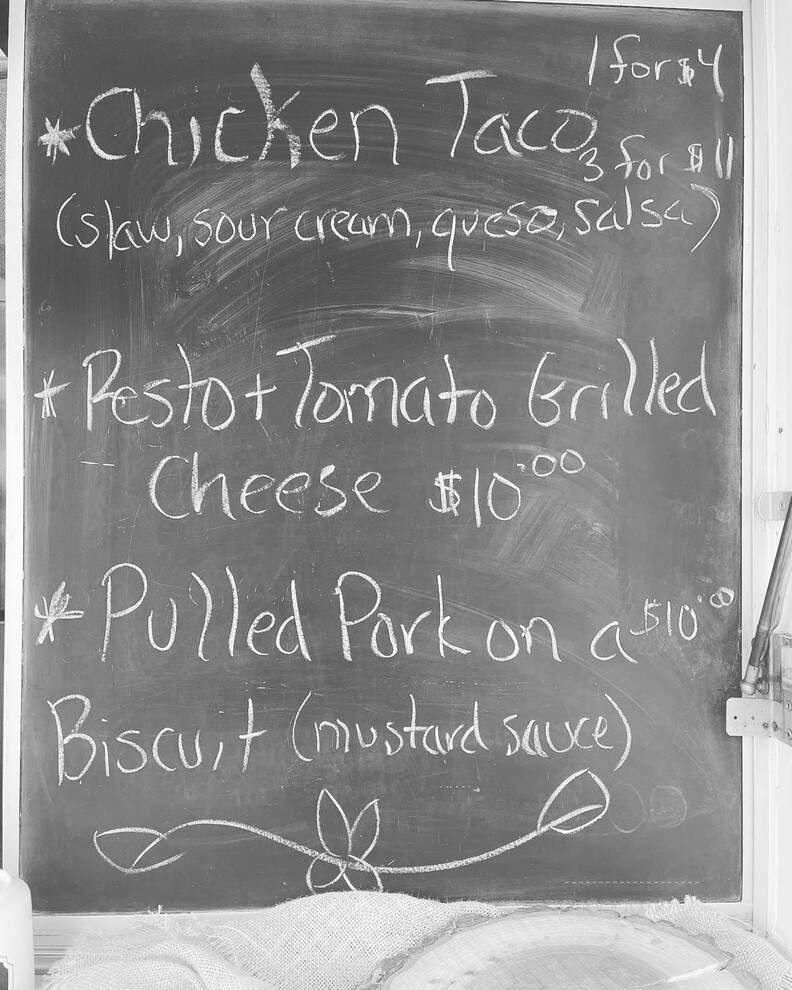 1 for $4
* Chicken Taco
3 for $11
(slaw, sour cream, queso, salsa)
* Pesto + Tomato Grilled
Cheese $10.00
* Pulled Pork on a $10.00
Biscuit (mustard sauce)